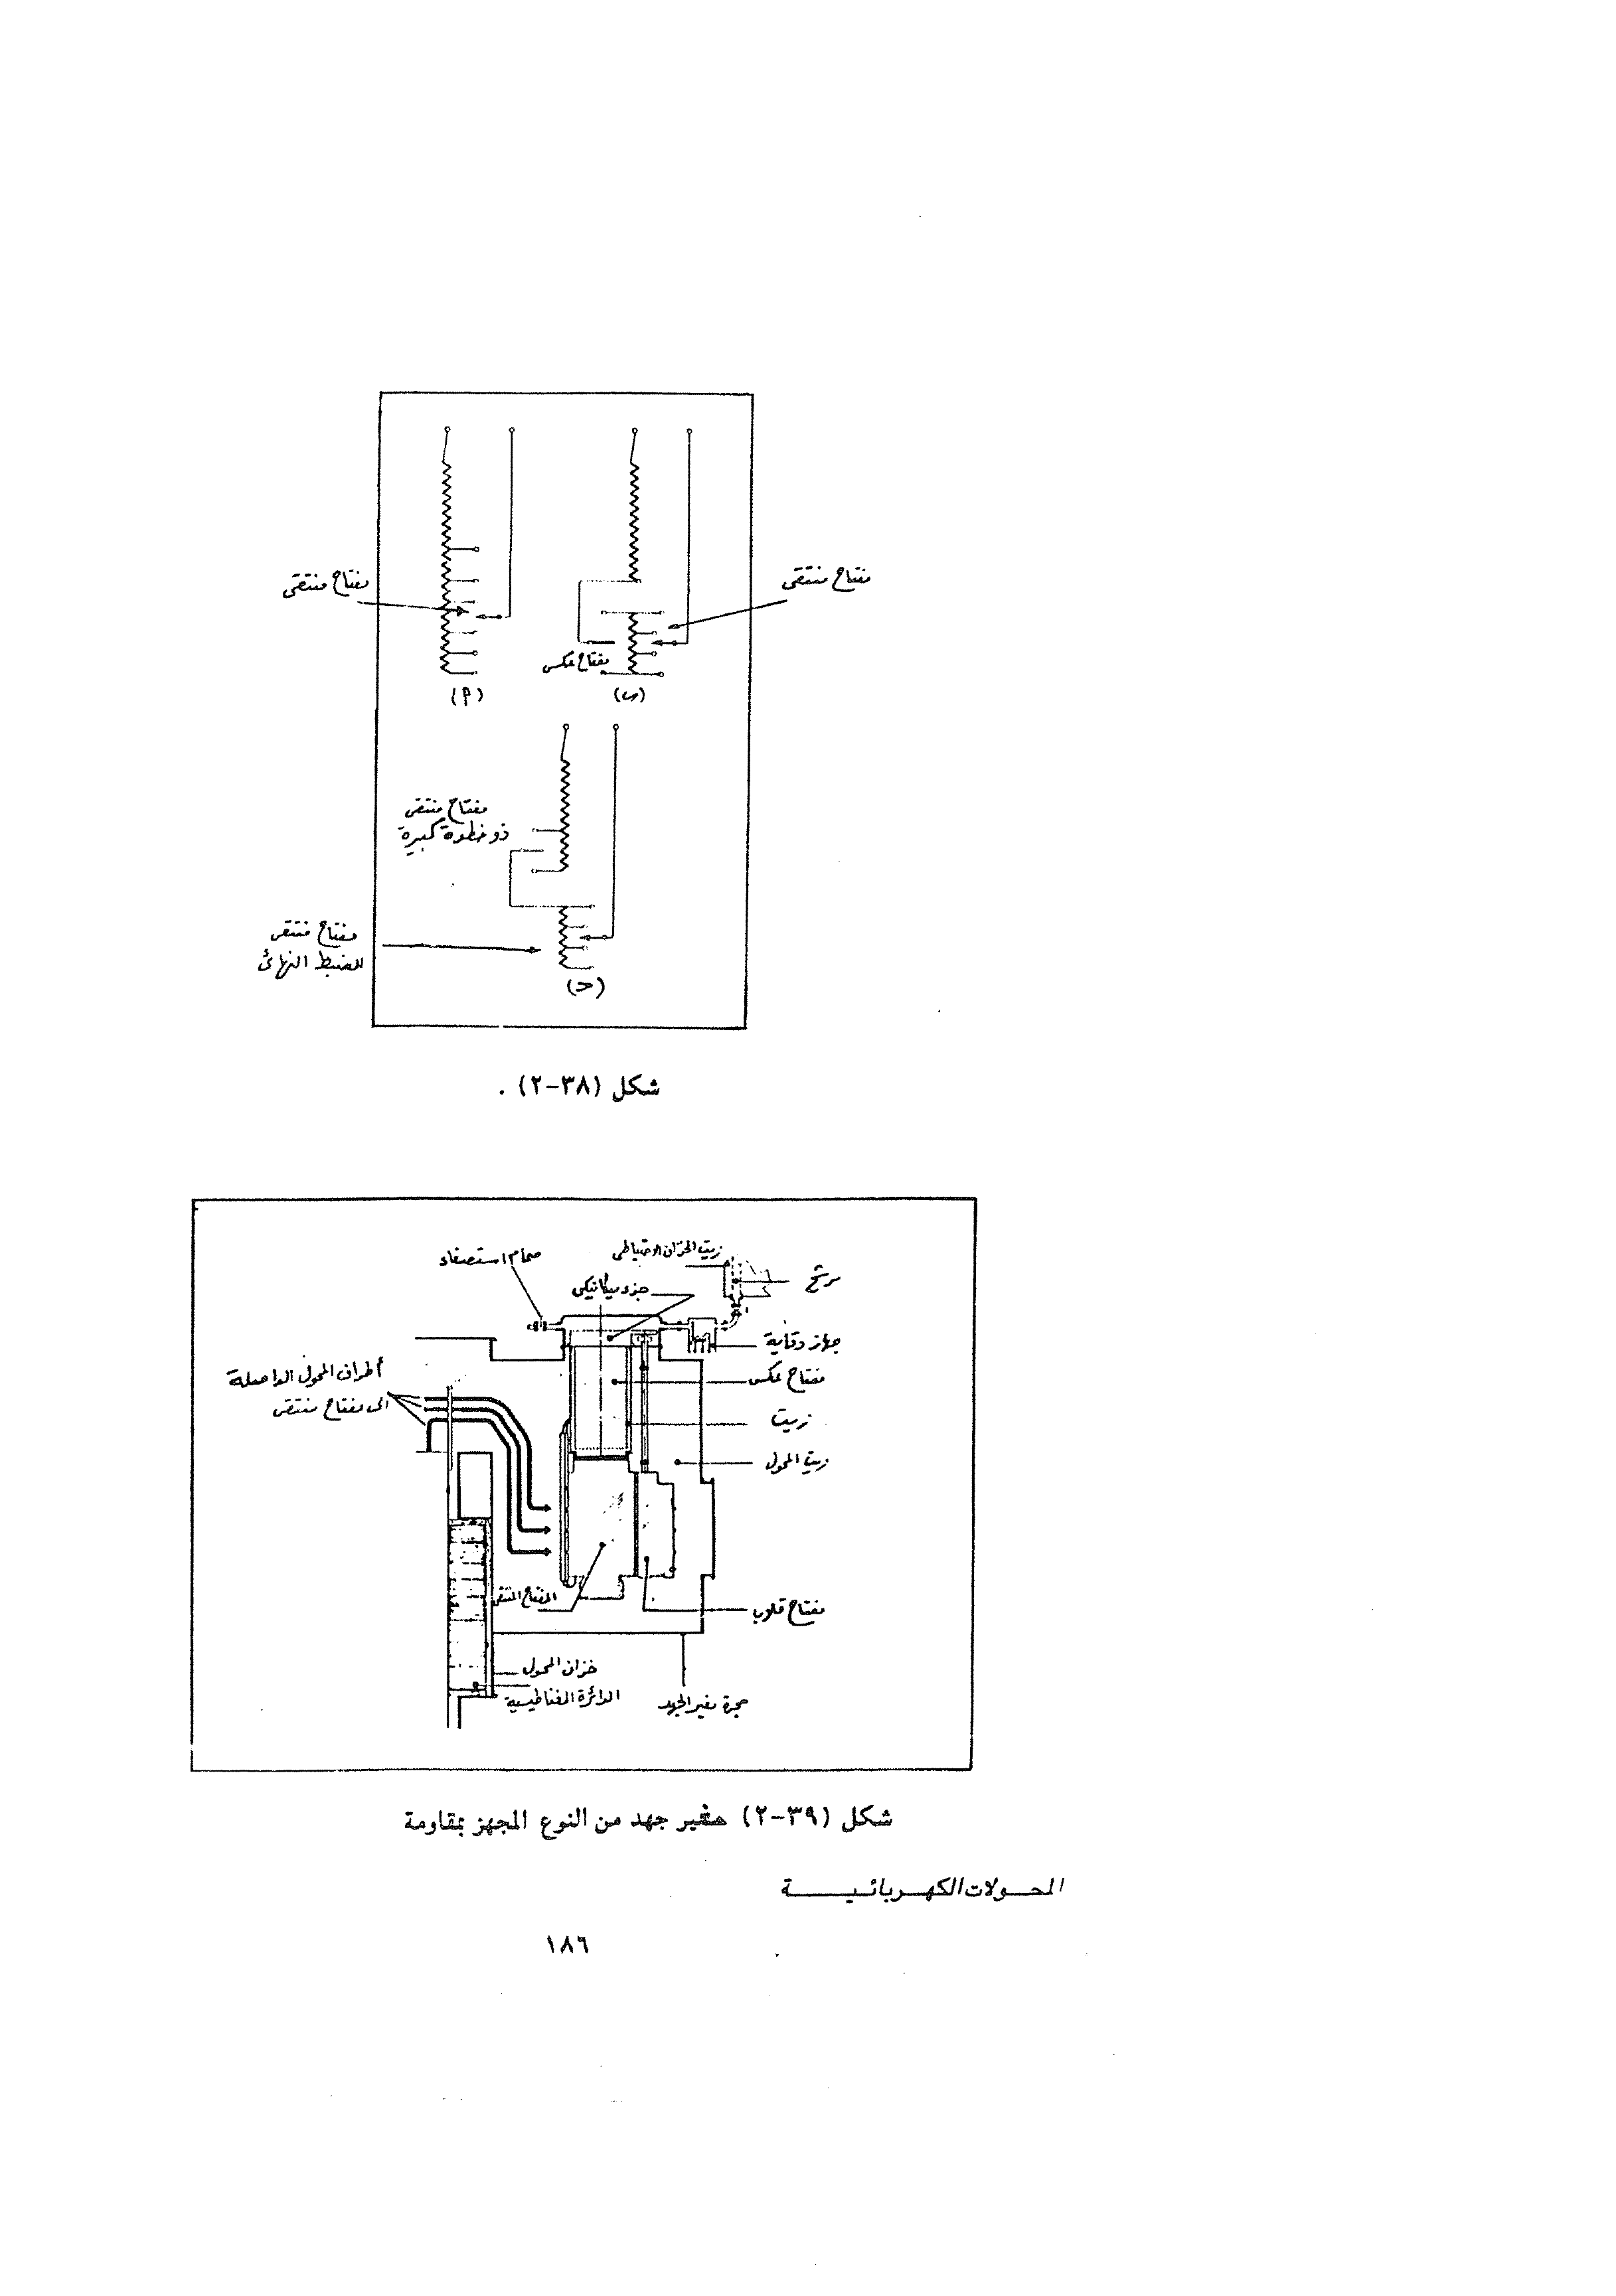 مفتاح منتقى
مفتاح منتقى
مفتاح عكس
(أ)
(ب)
مفتاح منتقى
ذو خطوة كبيرة
مفتاح منتقى
للضبط النهائى
(حـ)
شكل (٣٨-٢) .
زيت الخزان الاحتياطى
صمام استصفاء
مرشح
جزء ميكانيكى
جهاز وقاية
مفتاح عكس
أطراف المحول الواصلة
الى مفتاح منتقى
زيت
زيت المحول
المفتاح المنتقى
مفتاح قلاب
خزان المحول
الدائرة المغناطيسية
حجرة مغير الجهد
شكل (٣٩-٢) مغير جهد من النوع المجهز بمقاومة
المحولات الكهربائية
١٨٦